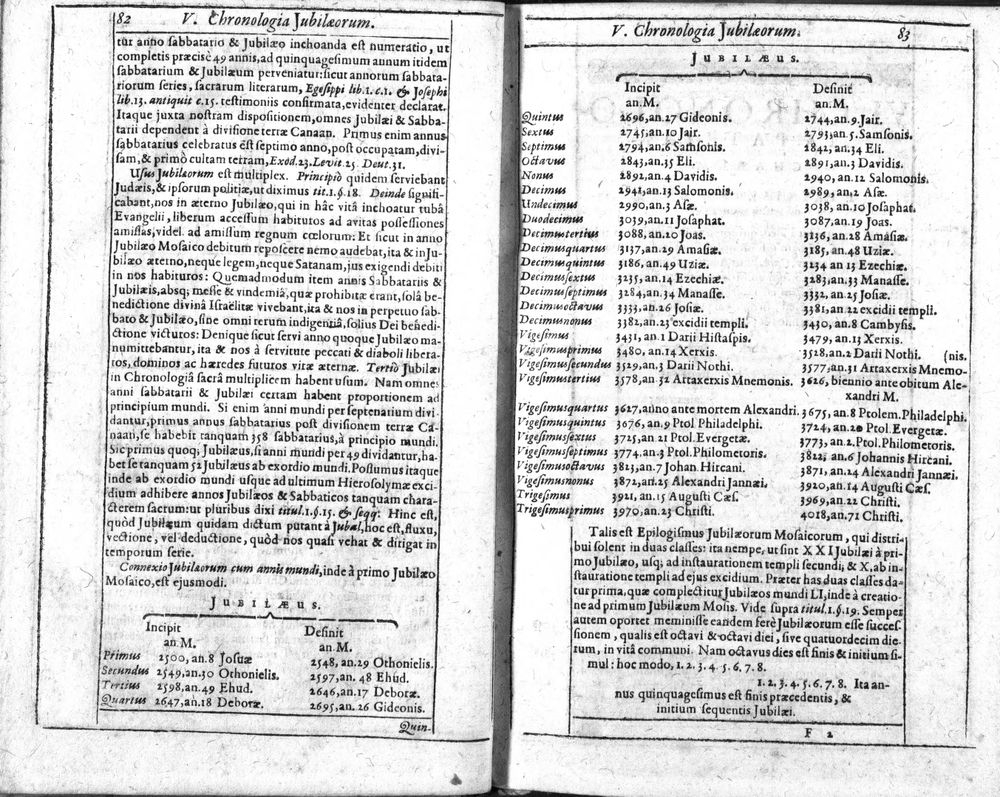 82 V. Chronologia Jubilæorum.
tur anno sabbatario & Jubilæo inchoanda est numeratio, ut
completis præcisè 49 annis, ad quinquagesimum annum itidem
sabbatarium & Jubilæum perveniatur: sicut annorum sabbata-
riorum series, sacrarum literarum, Egesippi lib. 1. c. 1. & Josephi
lib. 13. antiquit c. 15. testimoniis confirmata, evidenter declarat.
Itaque juxta nostram dispositionem, omnes Jubilæi & Sabba-
tarii dependent à divisione terræ Canaan. Primus enim annus
sabbatarius celebratus est septimo anno, post occupatam, divi-
sam, & primò cultam terram, Exod. 23. Levit. 25. Deut. 31.
Usus Jubilæorum est multiplex. Principiò quidem serviebant
Judæis, & ipsorum politiæ, ut diximus tit. 1. §. 18. Deinde signifi-
cabant, nos in æterno Jubilæo, qui in hâc vitâ inchoatur tubâ
Evangelii, liberum accessum habituros ad avitas possessiones
amissas, videl. ad amissum regnum cœlorum: Et sicut in anno
Jubilæo Mosaico debitum reposcere nemo audebat, ita & in Ju-
bilæo æterno, neque legem, neque Satanam, jus exigendi debiti
in nos habituros: Quemadmodum item annis Sabbatariis &
Jubilæis, absq; messe & vindemiâ, quæ prohibitæ erant, solâ be-
nedictione divinâ Israëlitæ vivebant, ita & nos in perpetuo sab-
bato & Jubilæo, sine omni rerum indigentiâ, solius Dei benedi-
ctione victuros: Denique sicut servi anno quoque Jubilæo ma-
numittebantur, ita & nos à servitute peccati & diaboli libera-
tos, dominos ac hæredes futuros vitæ æternæ. Tertiò Jubilæi
in Chronologiâ sacrâ multiplicem habent usum. Nam omnes
anni sabbatarii & Jubilæi certam habent proportionem ad
principium mundi. Si enim anni mundi per septenarium divi-
dantur, primus annus sabbatarius post divisionem terræ Ca-
naan, se habebit tanquam 358 sabbatarius, à principio mundi.
Sic primus quoq; Jubilæus, si anni mundi per 49 dividantur, ha-
bet se tanquam 52 Jubilæus ab exordio mundi. Possumus itaque
inde ab exordio mundi usque ad ultimum Hierosolymæ exci-
dium adhibere annos Jubilæos & Sabbaticos tanquam chara-
cterem sacrum: ut pluribus dixi titul. 1. §. 15. & seqq. Hinc est,
quòd Jubilæum quidam dictum putant à Jubal, hoc est, fluxu,
vectione, vel deductione, quòd nos quasi vehat & dirigat in
temporum serie.
Connexio Jubilæorum cum annis mundi, inde à primo Jubilæo
Mosaico, est ejusmodi.
JUBILÆUS.
Incipit Definit
an. M. an. M.
Primus 2500, an. 8 Josuæ 2548, an. 29 Othonielis.
Secundus 2549, an. 30 Othonielis. 2597, an. 48 Ehud.
Tertius 2598, an. 49 Ehud. 2646, an. 17 Deboræ.
Quartus 2647, an. 18 Deboræ. 2695, an. 26 Gideonis.
Quin-
V. Chronologia Jubilæorum. 83
JUBILÆUS.
Incipit Definit
an. M. an. M.
Quintus 2696, an. 27 Gideonis. 2744, an. 9. Jair.
Sextus 2745, an. 10 Jair. 2793, an. 5. Samsonis.
Septimus 2794, an. 6 Samsonis. 2842, an. 34 Eli.
Octavus 2843, an. 35 Eli. 2891, an. 3 Davidis.
Nonus 2892, an. 4 Davidis. 2940, an. 12 Salomonis.
Decimus 2941, an. 13 Salomonis. 2989, an. 2 Asæ.
Undecimus 2990, an. 3 Asæ. 3038, an. 10 Josaphat.
Duodecimus 3039, an. 11 Josaphat. 3087, an. 19 Joas.
Decimustertius 3088, an. 20 Joas. 3136, an. 28 Amasiæ.
Decimusquartus 3137, an. 29 Amasiæ. 3185, an. 48 Uziæ.
Decimusquintus 3186, an. 49 Uziæ. 3234 an 13 Ezechiæ.
Decimussextus 3235, an. 14 Ezechiæ. 3283, an. 33 Manasse.
Decimusseptimus 3284, an. 34 Manasse. 3332, an. 25 Josiæ.
Decimusoctavus 3333, an. 26 Josiæ. 3381, an. 22 excidii templi.
Decimusnonus 3382, an. 23 excidii templi. 3430, an. 8 Cambysis.
Vigesimus 3431, an. 1 Darii Histaspis. 3479, an. 13 Xerxis.
Vigesimusprimus 3480, an. 14 Xerxis. 3528, an. 2 Darii Nothi. (nis.
Vigesimussecundus 3529, an. 3 Darii Nothi. 3577, an. 31 Artaxerxis Mnemo-
Vigesimustertius 3578, an. 32 Artaxerxis Mnemonis. 3626, biennio ante obitum Ale-
xandri M.
Vigesimusquartus 3627, anno ante mortem Alexandri. 3675, an. 8 Ptolem. Philadelphi.
Vigesimusquintus 3676, an. 9 Ptol. Philadelphi. 3724, an. 20 Ptol. Evergetæ.
Vigesimussextus 3725, an. 21 Ptol. Evergetæ. 3773, an. 2. Ptol. Philometoris.
Vigesimusseptimus 3774, an. 3 Ptol. Philometoris. 3822, an. 6 Johannis Hircani.
Vigesimusoctavus 3823, an. 7 Johan. Hircani. 3871, an. 24 Alexandri Jannæi.
Vigesimusnonus 3872, an. 25 Alexandri Jannæi. 3920, an. 14 Augusti Cæs.
Trigesimus 3921, an. 15 Augusti Cæs. 3969, an. 22 Christi.
Trigesimusprimus 3970, an. 23 Christi. 4018, an. 71 Christi.
Talis est Epilogismus Jubilæorum Mosaicorum, qui distri-
bui solent in duas classes: ita nempe, ut sint XXI Jubilæi à pri-
mo Jubilæo, usq; ad instaurationem templi secundi; & X, ab in-
stauratione templi ad ejus excidium. Præter has duas classes da-
tur prima, quæ complectitur Jubilæos mundi LI, inde à creatio-
ne ad primum Jubilæum Mosis. Vide supra titul. 1. §. 19. Semper
autem oportet meminisse eandem ferè Jubilæorum esse succes-
sionem, qualis est octavi & octavi diei, sive quatuordecim die-
rum, in vitâ communi. Nam octavus dies est finis & initium si-
mul: hoc modo, 1. 2. 3. 4. 5. 6. 7. 8.
1. 2. 3. 4. 5. 6. 7. 8. Ita an-
nus quinquagesimus est finis præcedentis, &
initium sequentis Jubilæi.
F 2